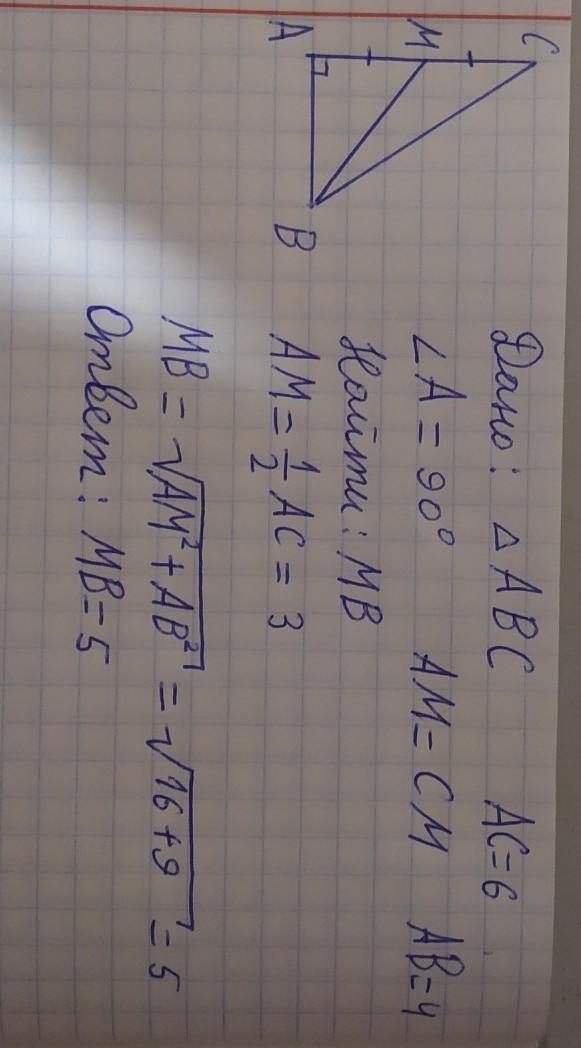 C
M
A
B
Дано: △ABC AC=6
∠A = 90° AM = CM AB=4
Найти: MB
AM = 1/2 AC = 3
MB = √AM² + AB² = √16+9 = 5
Ответ: MB=5